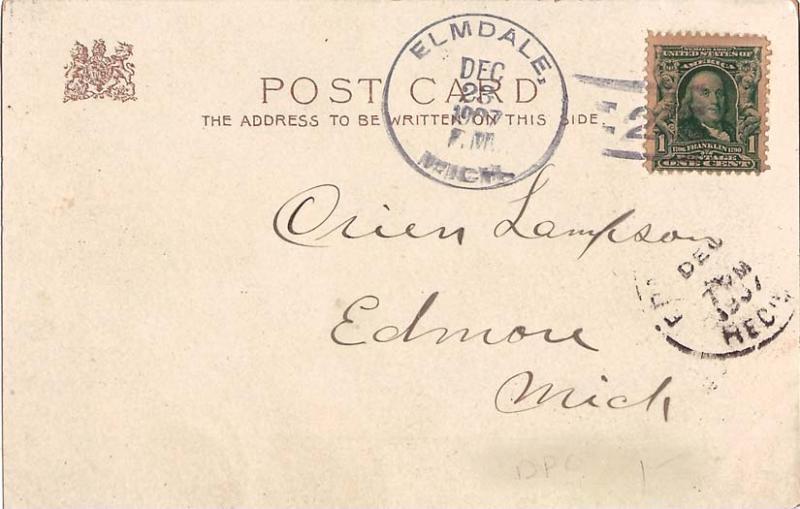 POST CARD
THE ADDRESS TO BE WRITTEN ON THIS SIDE.
ELMDALE,
DEC
1907
P.M.
MICH.
2
SERIES 1902
UNITED STATES OF
AMERICA
1 1706 FRANKLIN 1790 1
POSTAGE
ONE CENT
Orien Lampson
Edmore
Mich
DEC
1907
REC'D
DPO